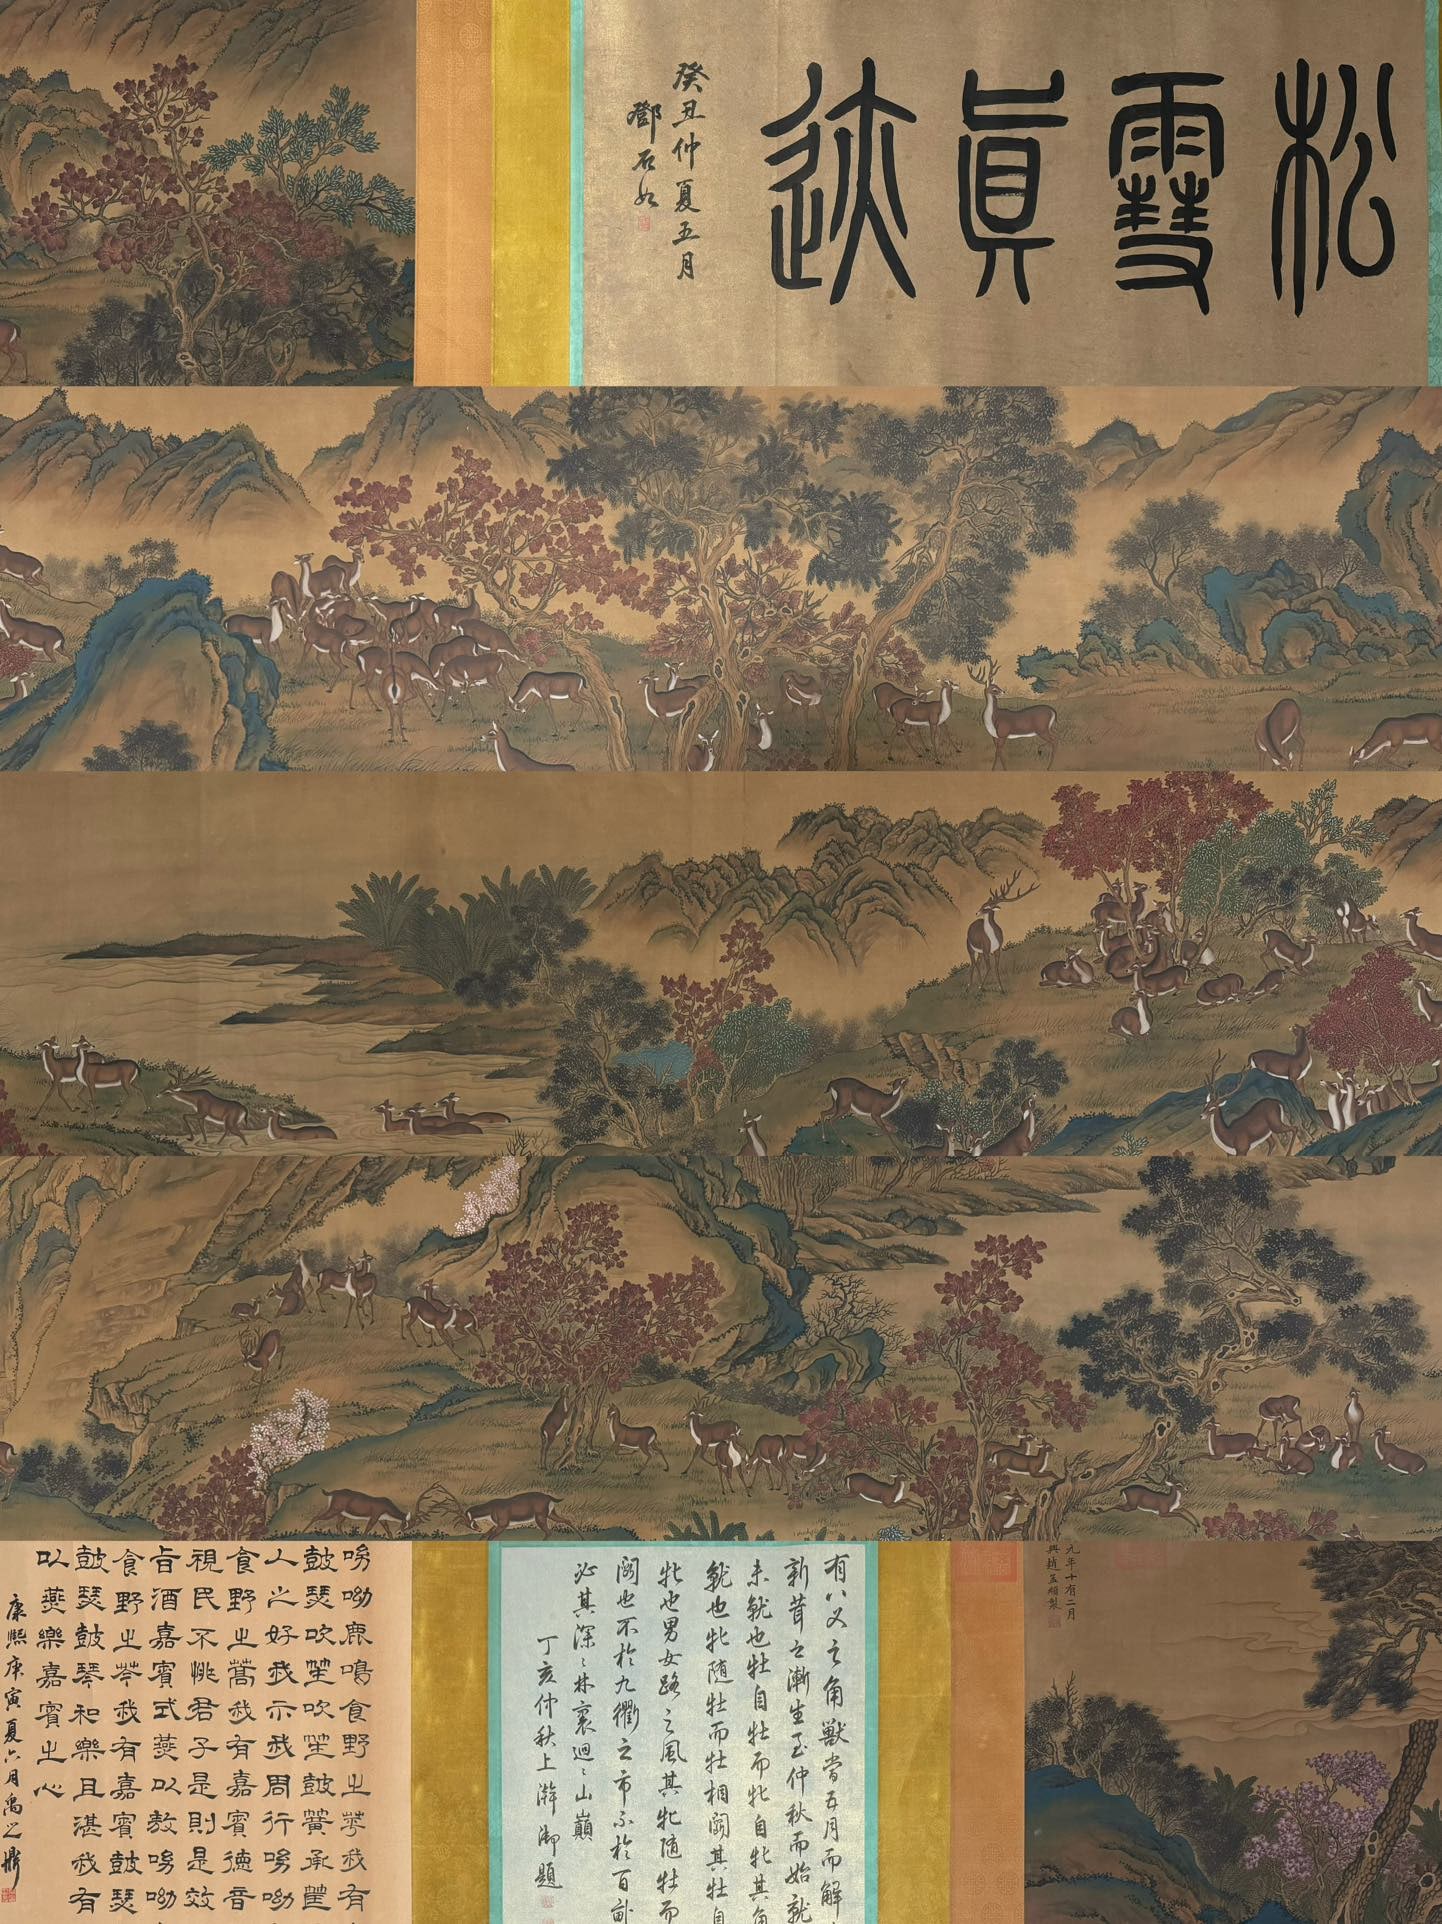 松雪真迹
癸丑仲夏五月
鄧石如
元年十有二月
興趙孟頫製
有八叉之角獸當五月而解
新茸之漸生至仲秋而始就
未就也牡自牡而牝自牝其角
就也牝随牡而牡相鬭其牡自
牝也男女路之風其牝随牡而
鬭也不於九衢之市不於百畝
必其深〻林裏迴〻山巔
丁亥仲秋上澣御題
呦呦鹿鳴食野之苹我有
鼓瑟吹笙吹笙鼓簧承筐
人之好我示我周行呦呦
食野之蒿我有嘉賓德音
視民不恌君子是則是效
旨酒嘉賓式燕以敖呦呦
食野之芩我有嘉賓鼓瑟
鼓瑟鼓琴和樂且湛我有
以燕樂嘉賓之心
康熙庚寅夏六月禹之鼎